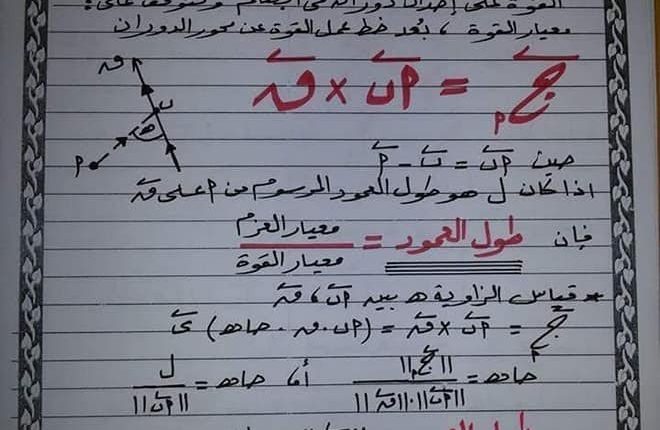 القوة على إحداث دوران فى الجسم وتتوقف على:
معيار القوة ، بُعد خط عمل القوة عن محور الدوران
ج م = م ن × ق
ق
ن
ه
م
حيث م ن = ن - م
اذا كان ل هو طول العمود المرسوم من م على ق
فإن طول العمود = معيار العزم / معيار القوة
* قياس الزاوية ه بين م ن ، ق
ج م = م ن × ق = (م ن . ق . جا ه) ى
جا ه = ||ج م|| / ||م ن||.||ق|| أما جا ه = ل / ||م ن||